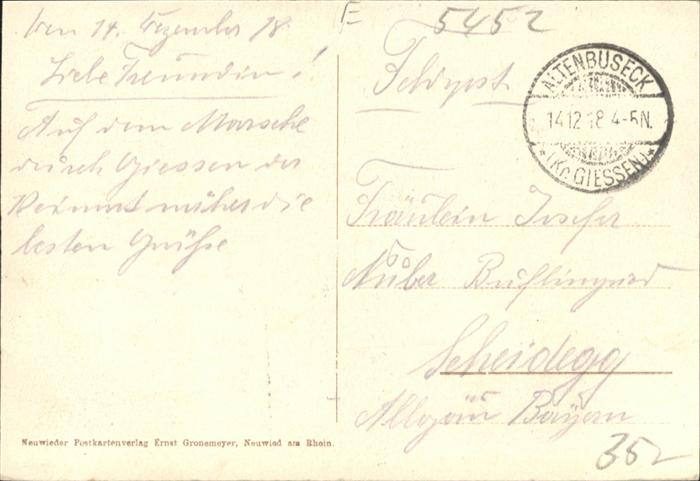 Den 14. Dezember 18
Liebe Freundin!
Auf dem Marsche
durch Giessen der
Heimat näher die
besten Grüße
E
5452
Feldpost
ALTENBUSECK
14.12.18 4-5N.
*(Kr. GIESSEN)*
Fräulein Josefa
Nuber
Scheidegg
Allgäu Bayern
352
Neuwieder Postkartenverlag Ernst Gronemeyer, Neuwied am Rhein.